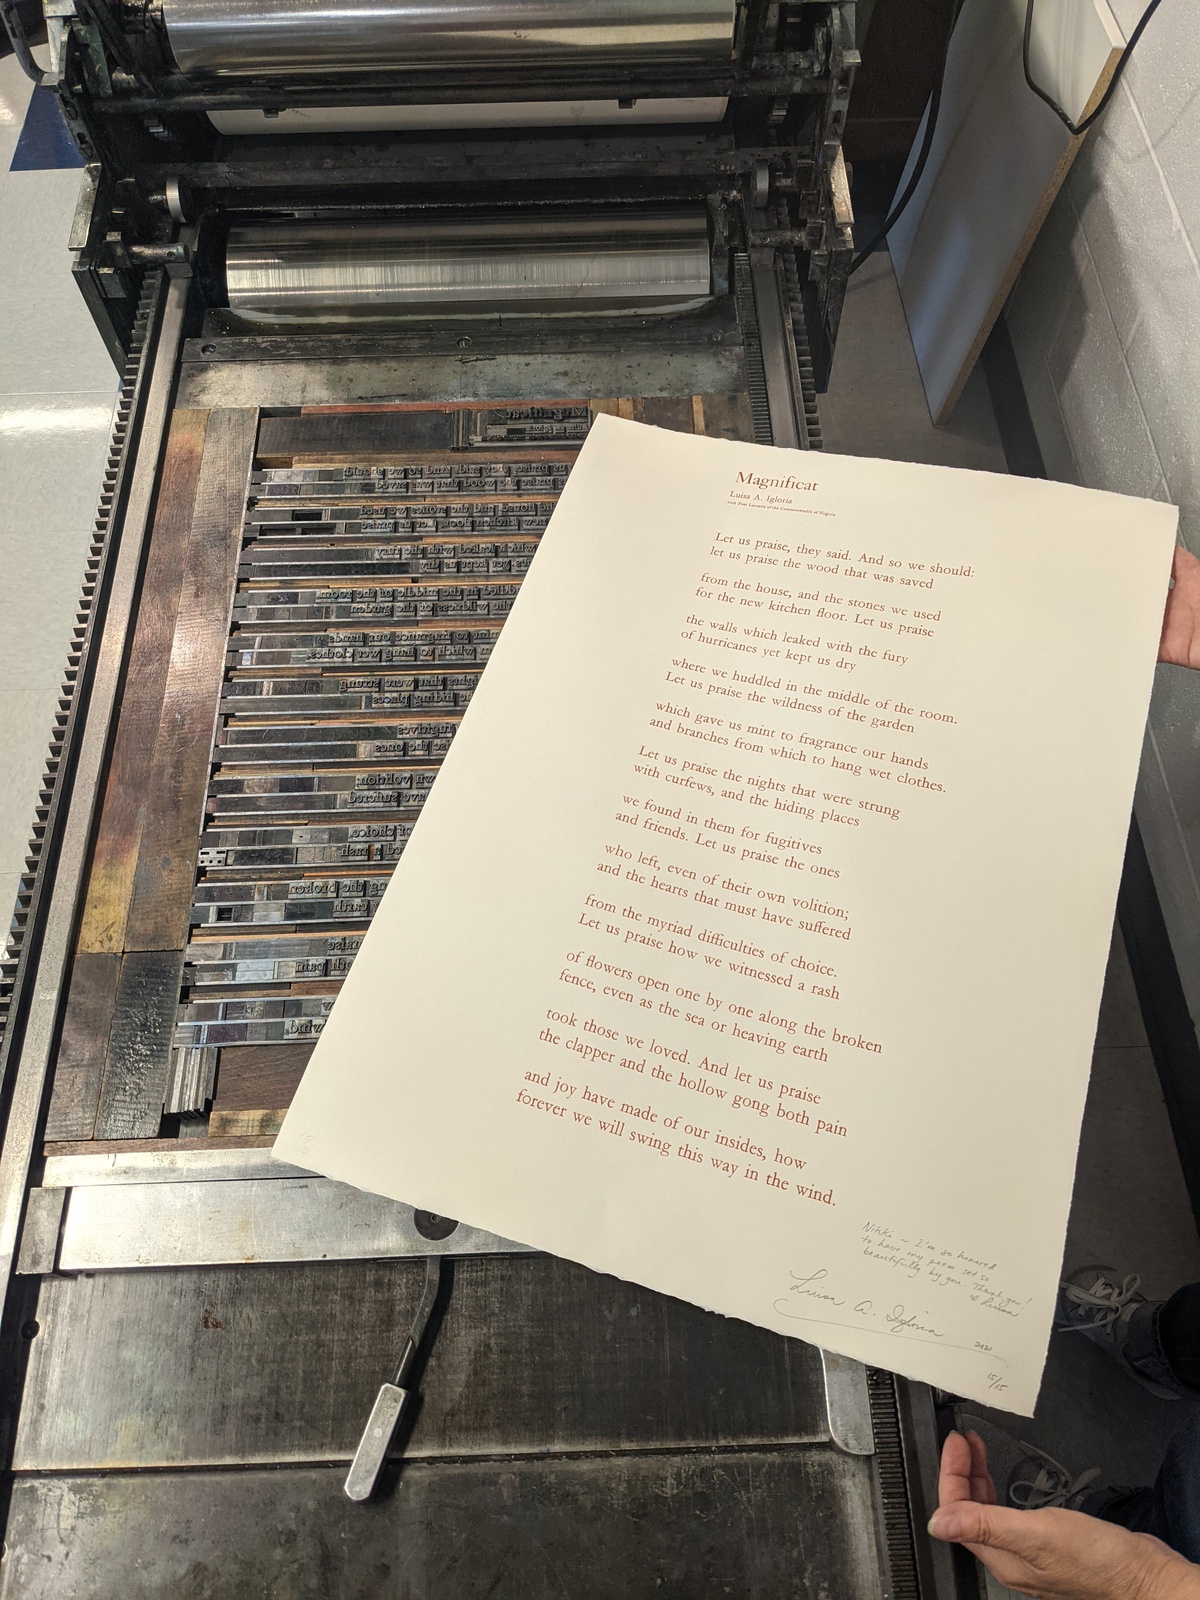 Magnificat
Luisa A. Igloria
20th Poet Laureate of the Commonwealth of Virginia
Let us praise, they said. And so we should:
let us praise the wood that was saved
from the house, and the stones we used
for the new kitchen floor. Let us praise
the walls which leaked with the fury
of hurricanes yet kept us dry
where we huddled in the middle of the room.
Let us praise the wildness of the garden
which gave us mint to fragrance our hands
and branches from which to hang wet clothes.
Let us praise the nights that were strung
with curfews, and the hiding places
we found in them for fugitives
and friends. Let us praise the ones
who left, even of their own volition;
and the hearts that must have suffered
from the myriad difficulties of choice.
Let us praise how we witnessed a rash
of flowers open one by one along the broken
fence, even as the sea or heaving earth
took those we loved. And let us praise
the clapper and the hollow gong both pain
and joy have made of our insides, how
forever we will swing this way in the wind.
Nikki – I'm so honored
to have my poem set so
beautifully by you. Thank you!
Luisa
Luisa A. Igloria
2021
15/15